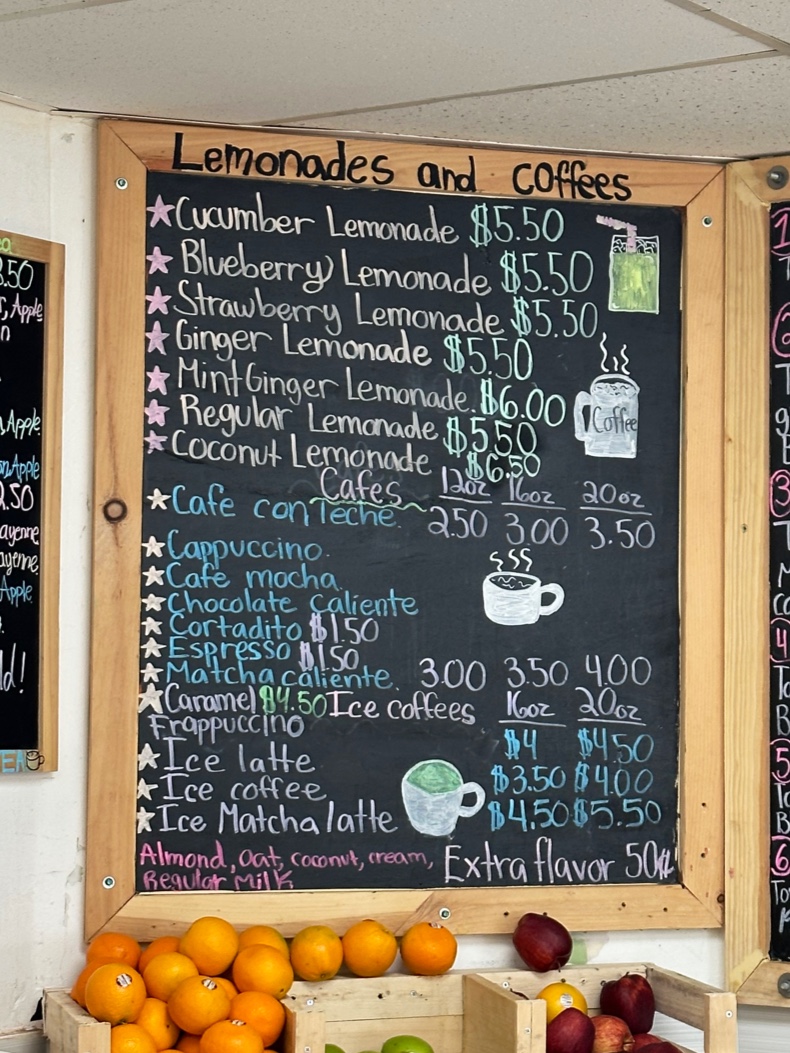 Lemonades and coffees
Cucumber Lemonade $5.50
Blueberry Lemonade $5.50
Strawberry Lemonade $5.50
Ginger Lemonade $5.50
Mint Ginger Lemonade. $6.00
Regular Lemonade $5.50
Coconut Lemonade $6.50
Coffee
Cafes 12oz 16oz 20oz
Cafe con Leche. 2.50 3.00 3.50
Cappuccino.
Cafe mocha.
Chocolate caliente
Cortadito $1.50
Espresso $1.50
Matcha caliente. 3.00 3.50 4.00
Caramel $4.50 Ice coffees 16oz 20oz
Frappuccino
Ice latte $4 $4.50
Ice coffee $3.50 $4.00
Ice Matcha latte $4.50 $5.50
Almond, oat, coconut, cream, Extra flavor 50¢
Regular Milk
.50
Apple
Apple
Apple
.50
ayenne
ayenne
Apple
1
2
3
4
5
6